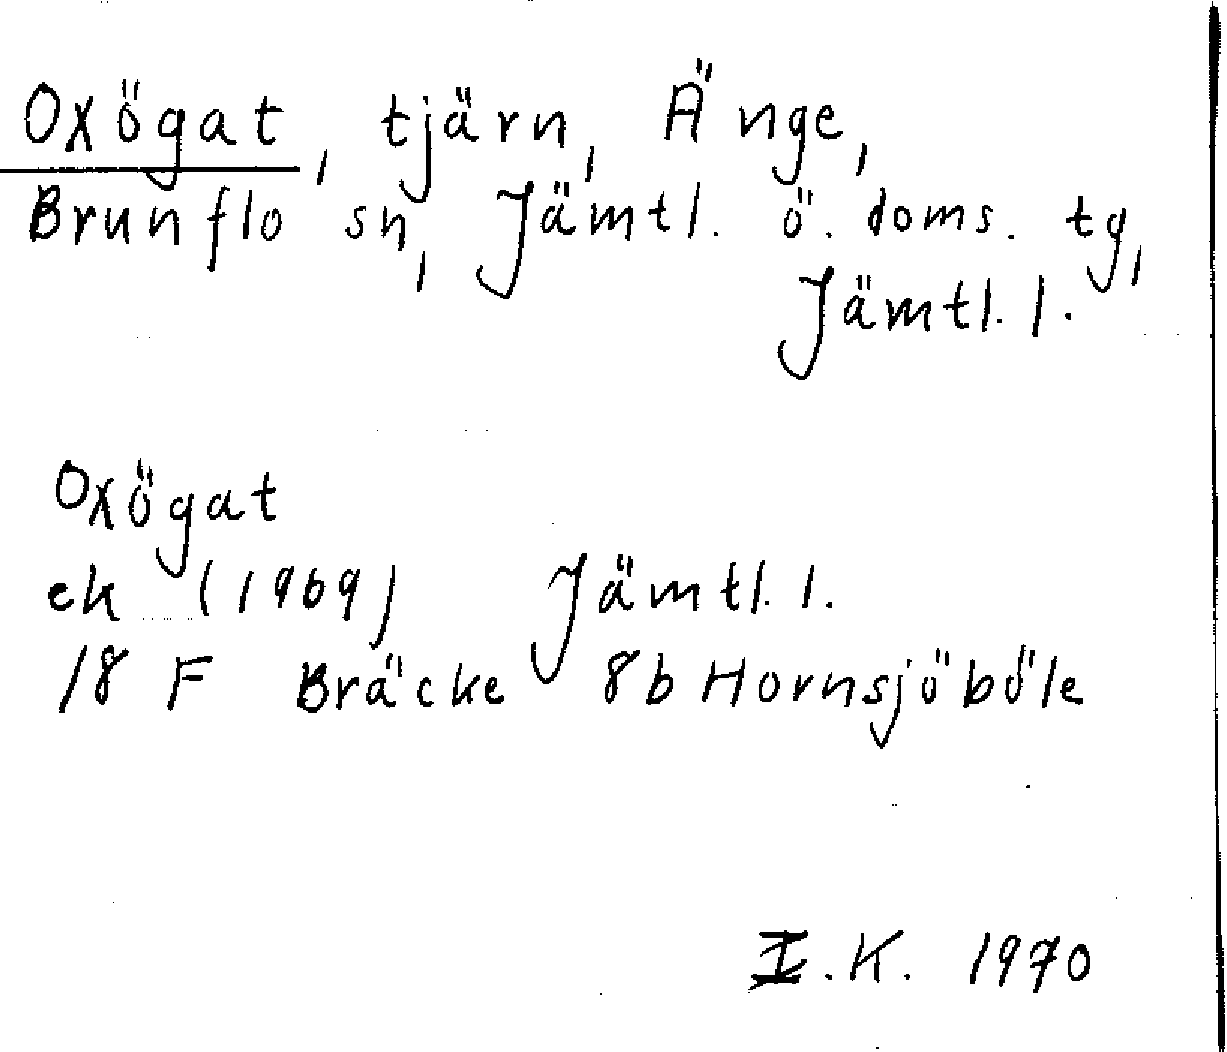 Oxögat, tjärn, Änge,
Brunflo sn, Jämtl. ö. doms. tg,
Jämtl. l.
Oxögat
ek (1969) Jämtl. l.
18 F Bräcke 8b Hornsjöböle
I.K. 1970